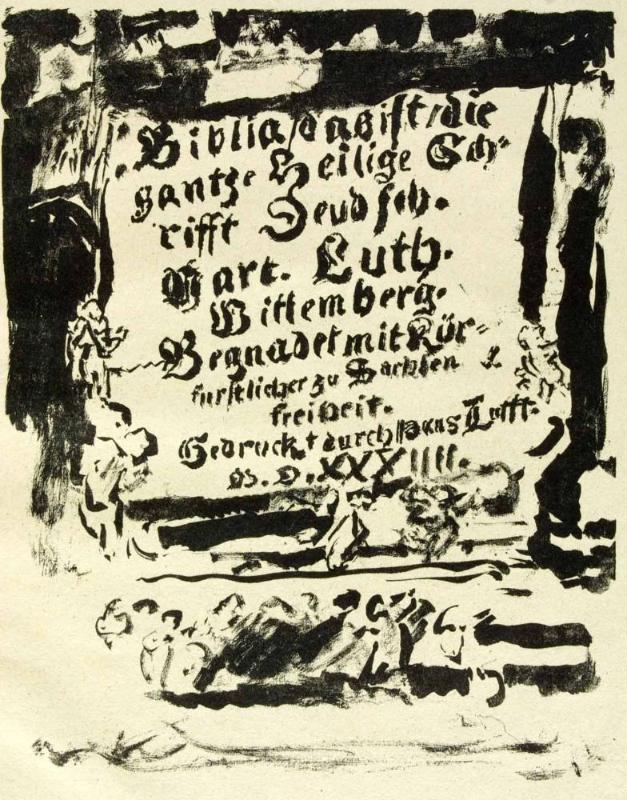 Biblia/das ist/die
gantze Heilige Sch-
rifft Deudsch.
Mart. Luth.
Wittemberg.
Begnadet mit Kür-
furstlicher zu Sachsen
freiheit.
Gedruckt durch Hans Lufft.
M. D. XXXIIII.